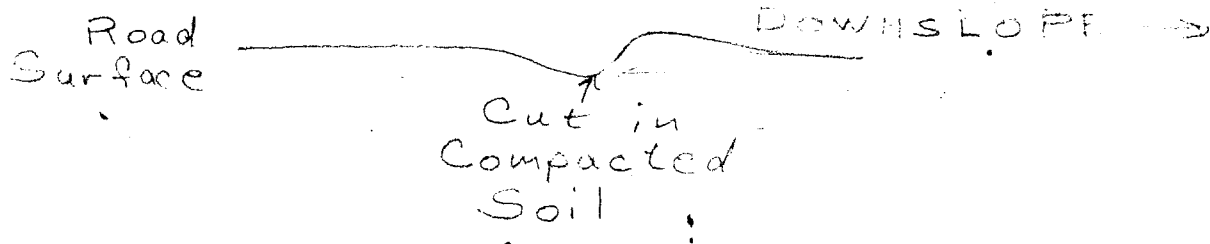 Road
Surface
DOWNSLOPE →
Cut in
Compacted
Soil